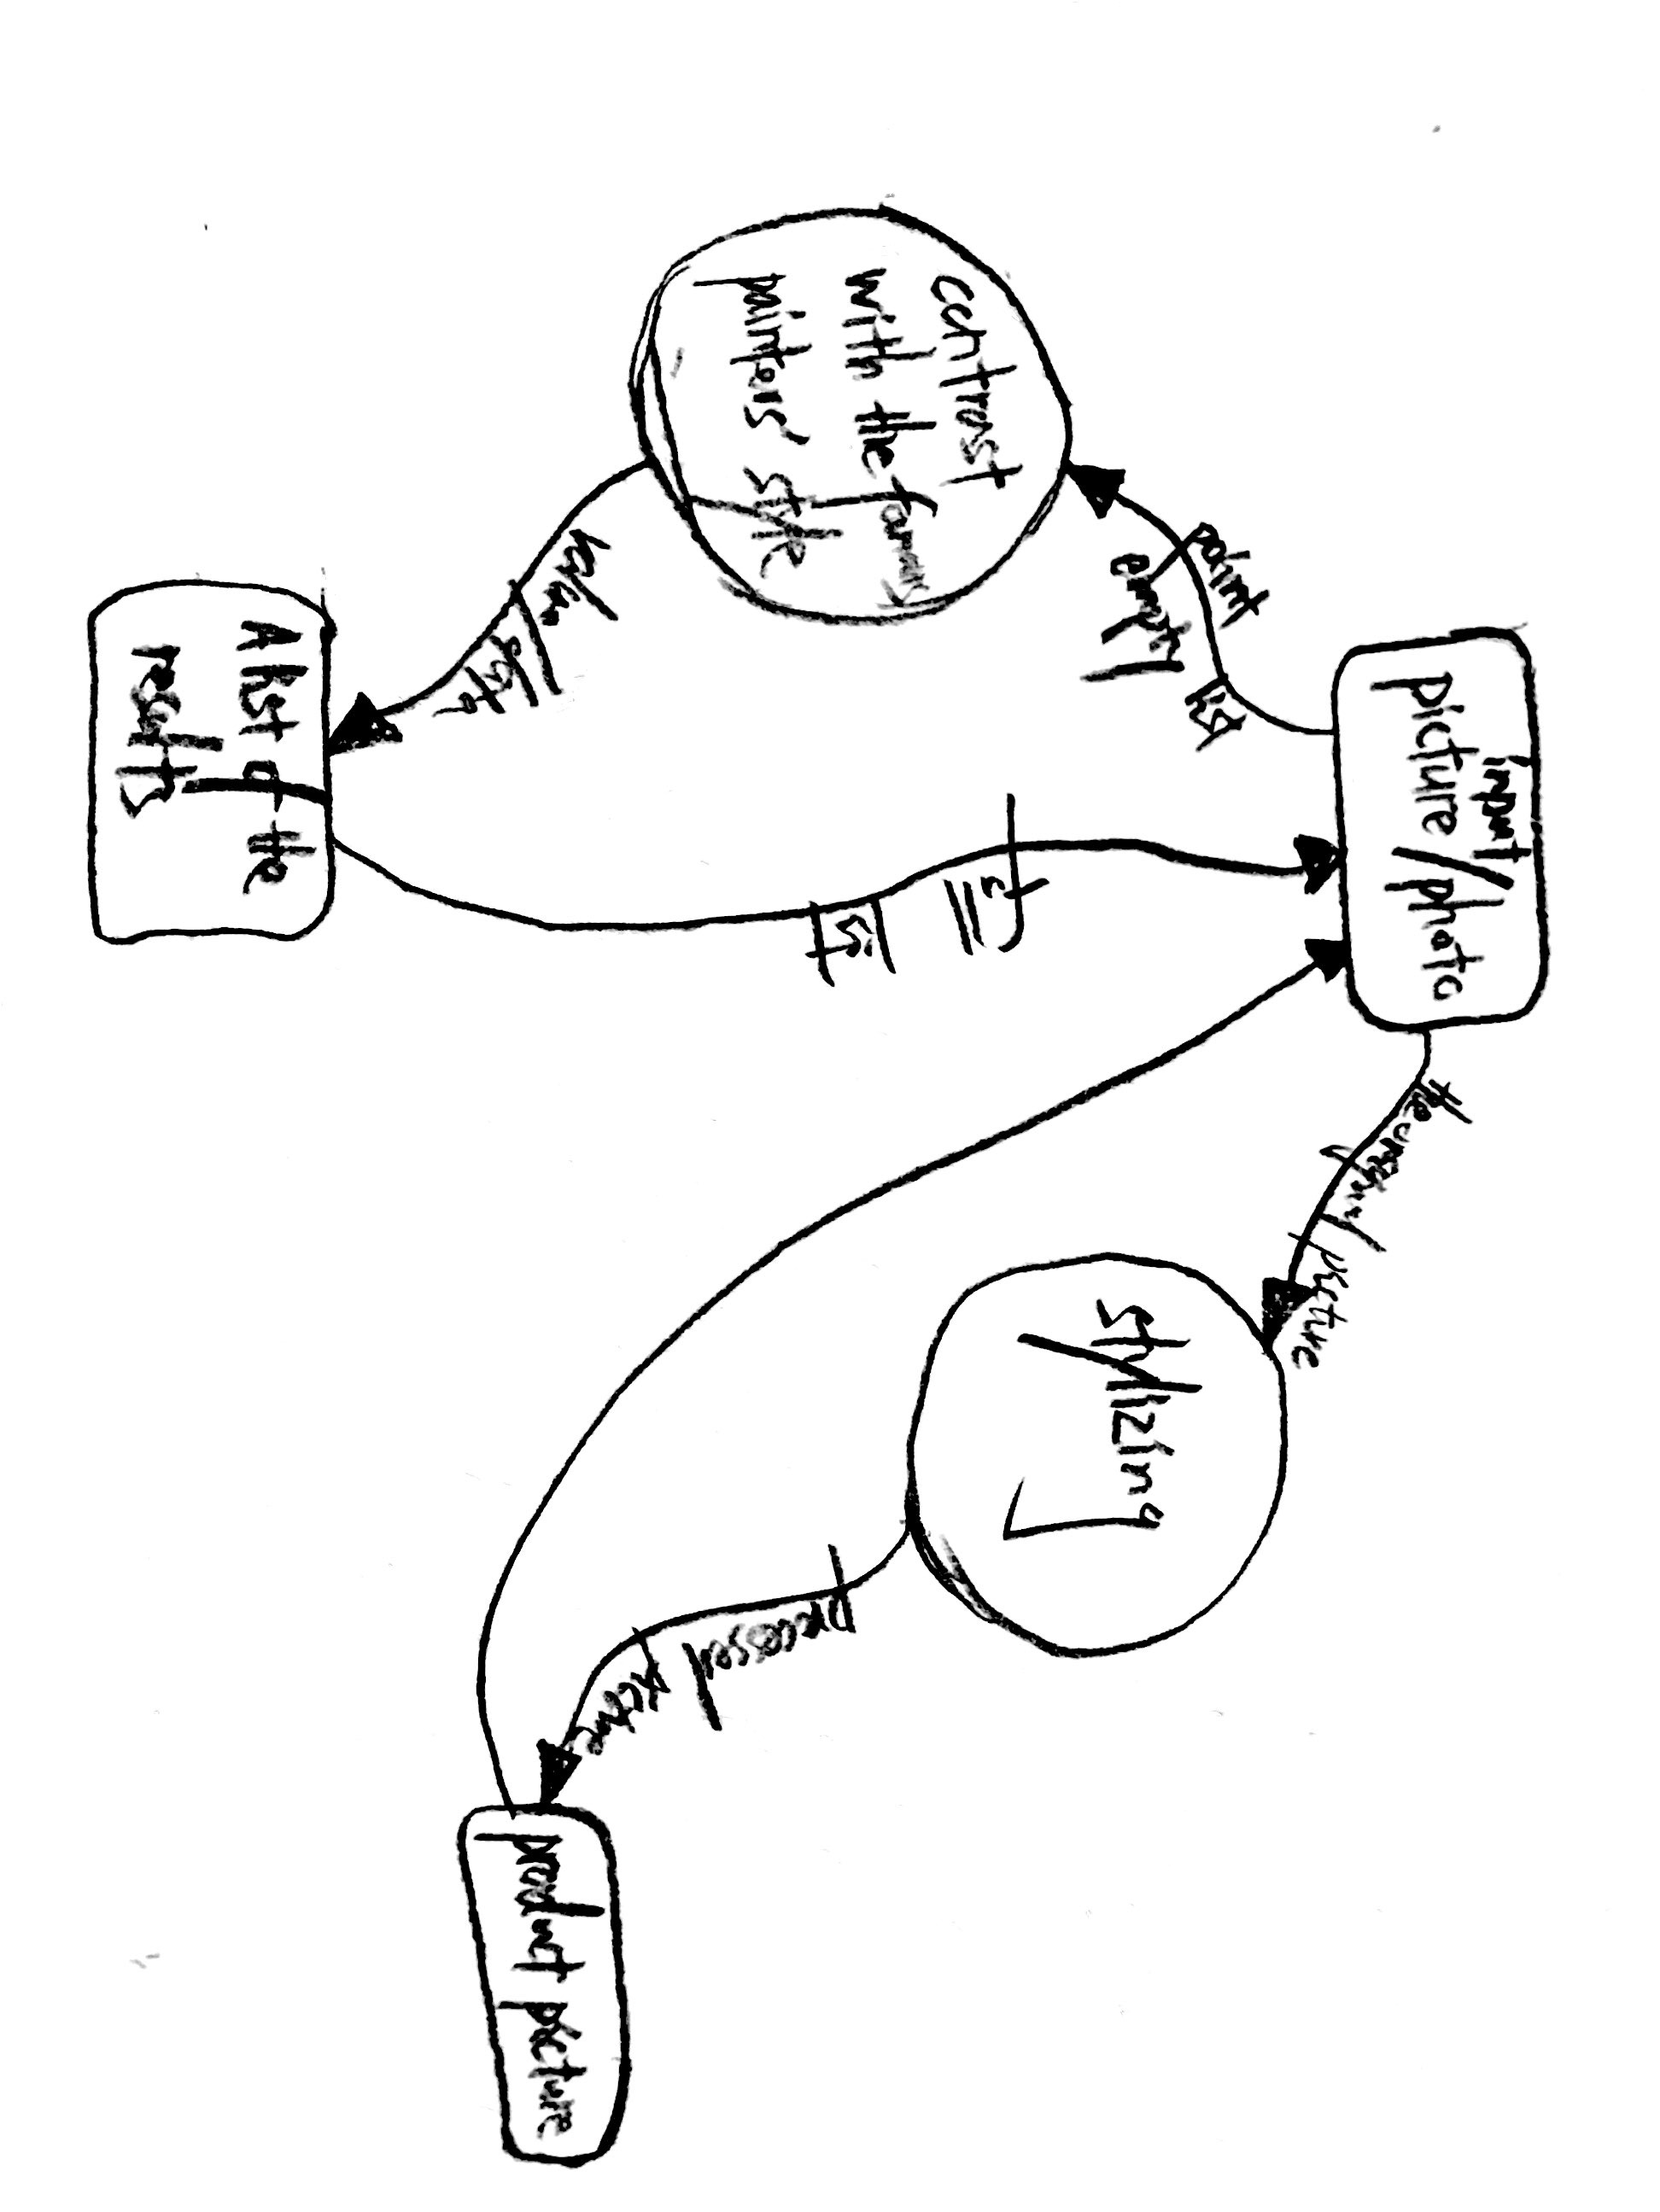 input
picture/photo
the original picture
point
empty list
stylizing
contrast
with the famous
painters' style
processed picture
product picture
data
A list of the
results